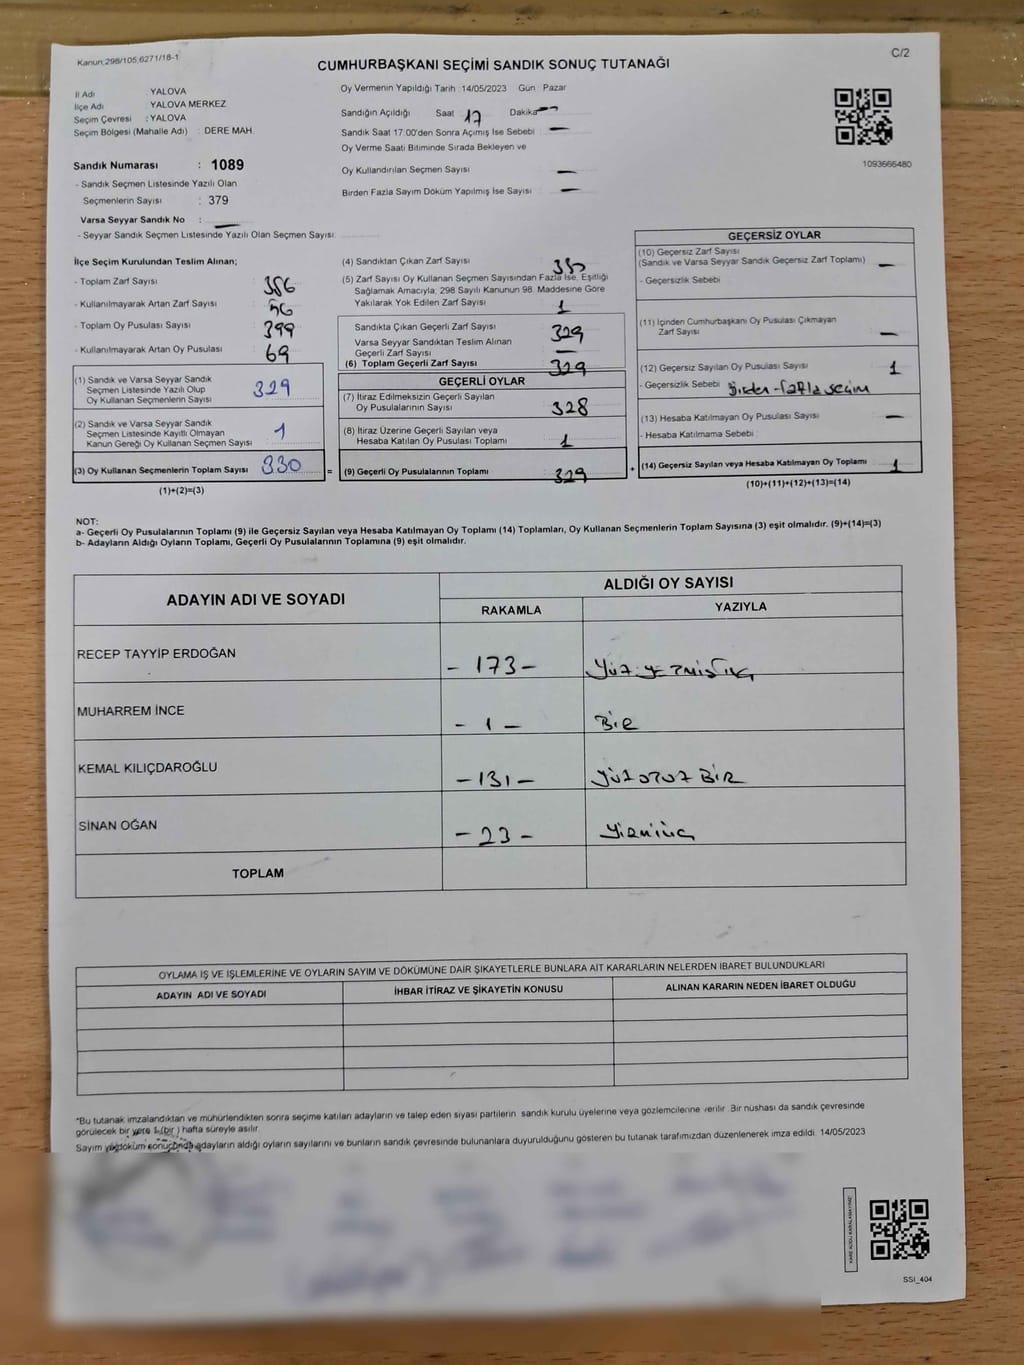 Kanun;298/105,6271/18-1
C/2
CUMHURBAŞKANI SEÇİMİ SANDIK SONUÇ TUTANAĞI
İl Adı : YALOVA
İlçe Adı : YALOVA MERKEZ
Seçim Çevresi : YALOVA
Seçim Bölgesi (Mahalle Adı) : DERE MAH.
Sandık Numarası : 1089
- Sandık Seçmen Listesinde Yazılı Olan
Seçmenlerin Sayısı : 379
Varsa Seyyar Sandık No : —
- Seyyar Sandık Seçmen Listesinde Yazılı Olan Seçmen Sayısı:
Oy Vermenin Yapıldığı Tarih :14/05/2023 Gün : Pazar
Sandığın Açıldığı Saat 17 Dakika —
Sandık Saat 17:00'den Sonra Açımış İse Sebebi —
Oy Verme Saati Bitiminde Sırada Bekleyen ve
Oy Kullandırılan Seçmen Sayısı —
Birden Fazla Sayım Döküm Yapılmış İse Sayısı —
1093666480
İlçe Seçim Kurulundan Teslim Alınan;
- Toplam Zarf Sayısı 386
- Kullanılmayarak Artan Zarf Sayısı 56
- Toplam Oy Pusulası Sayısı 399
- Kullanılmayarak Artan Oy Pusulası 69
(1) Sandık ve Varsa Seyyar Sandık
Seçmen Listesinde Yazılı Olup
Oy Kullanan Seçmenlerin Sayısı 329
(2) Sandık ve Varsa Seyyar Sandık
Seçmen Listesinde Kayıtlı Olmayan
Kanun Gereği Oy Kullanan Seçmen Sayısı 1
(3) Oy Kullanan Seçmenlerin Toplam Sayısı 330 =
(1)+(2)=(3)
(4) Sandıktan Çıkan Zarf Sayısı 330
(5) Zarf Sayısı Oy Kullanan Seçmen Sayısından Fazla İse, Eşitliği
Sağlamak Amacıyla, 298 Sayılı Kanunun 98. Maddesine Göre
Yakılarak Yok Edilen Zarf Sayısı 1
Sandıkta Çıkan Geçerli Zarf Sayısı 329
Varsa Seyyar Sandıktan Teslim Alınan
Geçerli Zarf Sayısı —
(6) Toplam Geçerli Zarf Sayısı 329
GEÇERLİ OYLAR
(7) İtiraz Edilmeksizin Geçerli Sayılan
Oy Pusulalarının Sayısı 328
(8) İtiraz Üzerine Geçerli Sayılan veya
Hesaba Katılan Oy Pusulası Toplamı 1
(9) Geçerli Oy Pusulalarının Toplamı 329 +
GEÇERSİZ OYLAR
(10) Geçersiz Zarf Sayısı
(Sandık ve Varsa Seyyar Sandık Geçersiz Zarf Toplamı) —
- Geçersizlik Sebebi
(11) İçinden Cumhurbaşkanı Oy Pusulası Çıkmayan
Zarf Sayısı —
(12) Geçersiz Sayılan Oy Pusulası Sayısı 1
- Geçersizlik Sebebi Birden fazla seçim
(13) Hesaba Katılmayan Oy Pusulası Sayısı —
- Hesaba Katılmama Sebebi
(14) Geçersiz Sayılan veya Hesaba Katılmayan Oy Toplamı 1
(10)+(11)+(12)+(13)=(14)
NOT:
a- Geçerli Oy Pusulalarının Toplamı (9) ile Geçersiz Sayılan veya Hesaba Katılmayan Oy Toplamı (14) Toplamları, Oy Kullanan Seçmenlerin Toplam Sayısına (3) eşit olmalıdır. (9)+(14)=(3)
b- Adayların Aldığı Oyların Toplamı, Geçerli Oy Pusulalarının Toplamına (9) eşit olmalıdır.
ADAYIN ADI VE SOYADI
ALDIĞI OY SAYISI
RAKAMLA YAZIYLA
RECEP TAYYİP ERDOĞAN - 173 - yüz yetmişüç
MUHARREM İNCE - 1 - Bir
KEMAL KILIÇDAROĞLU - 131 - yüz otuz Bir
SİNAN OĞAN - 23 - yirmiüç
TOPLAM
OYLAMA İŞ VE İŞLEMLERİNE VE OYLARIN SAYIM VE DÖKÜMÜNE DAİR ŞİKAYETLERLE BUNLARA AİT KARARLARIN NELERDEN İBARET BULUNDUKLARI
ADAYIN ADI VE SOYADI İHBAR İTİRAZ VE ŞİKAYETİN KONUSU ALINAN KARARIN NEDEN İBARET OLDUĞU
*Bu tutanak imzalandıktan ve mühürlendikten sonra seçime katılan adayların ve talep eden siyasi partilerin sandık kurulu üyelerine veya gözlemcilerine verilir. Bir nüshası da sandık çevresinde
görülecek bir yere 1 (bir) hafta süreyle asılır.
Sayım ve döküm sonucunda adayların aldığı oyların sayılarını ve bunların sandık çevresinde bulunanlara duyurulduğunu gösteren bu tutanak tarafımızdan düzenlenerek imza edildi. 14/05/2023
KARE KODU KARALAMAYINIZ!
SSI_404